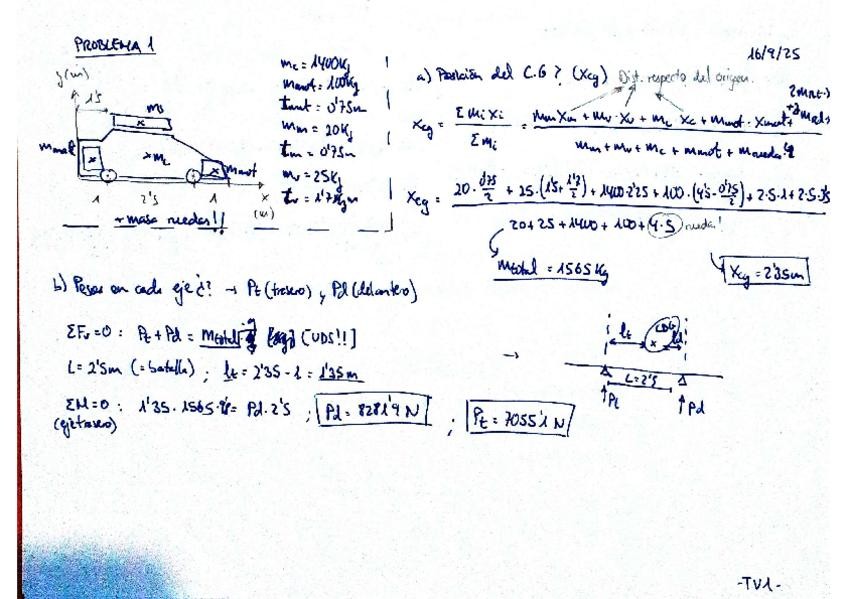 PROBLEMA 1
16/9/25
y(m)
1'5
ms
mmal
mc
mmot
1 2'5 1 x (m)
+ masa ruedas!!
mc = 1400Kg
mmot = 100Kg
tmot = 0'75m
mm = 20Kg
tm = 0'75m
mv = 25Kg
tv = 1'7
a) Posición del C.G? (Xcg) Dist. respecto del origen.
Xcg = Σ mi xi / Σ mi = mm xm + mv · xv + mc · xc + mmot · xmot + / mm + mv + mc + mmot + mruedas · 4
Xcg = 20 · 0'75/2 + 25 · (1'5 + 1'7/2) + 1400 · 2'25 + 100 · (4'5 - 0'75/2) + 2·5·1 + 2·5·3'5 / 20 + 25 + 1400 + 100 + (4·5) ruedas!
mtotal = 1565 Kg
Xcg = 2'35m
b) Pesos en cada eje¿? → Pt (trasero) y Pd (delantero)
ΣFv = 0 : Pt + Pd = mtotal · g [UDS!!]
L = 2'5m (= batalla) ; lt = 2'35 - 1 = 1'35m
→
lt
CDG
ld
L = 2'5
Pt
Pd
ΣM = 0 : 1'35 · 1565 · = Pd · 2'5 ; Pd = 8281'9 N ; Pt = 7055'1 N
(eje trasero)
-TV1-